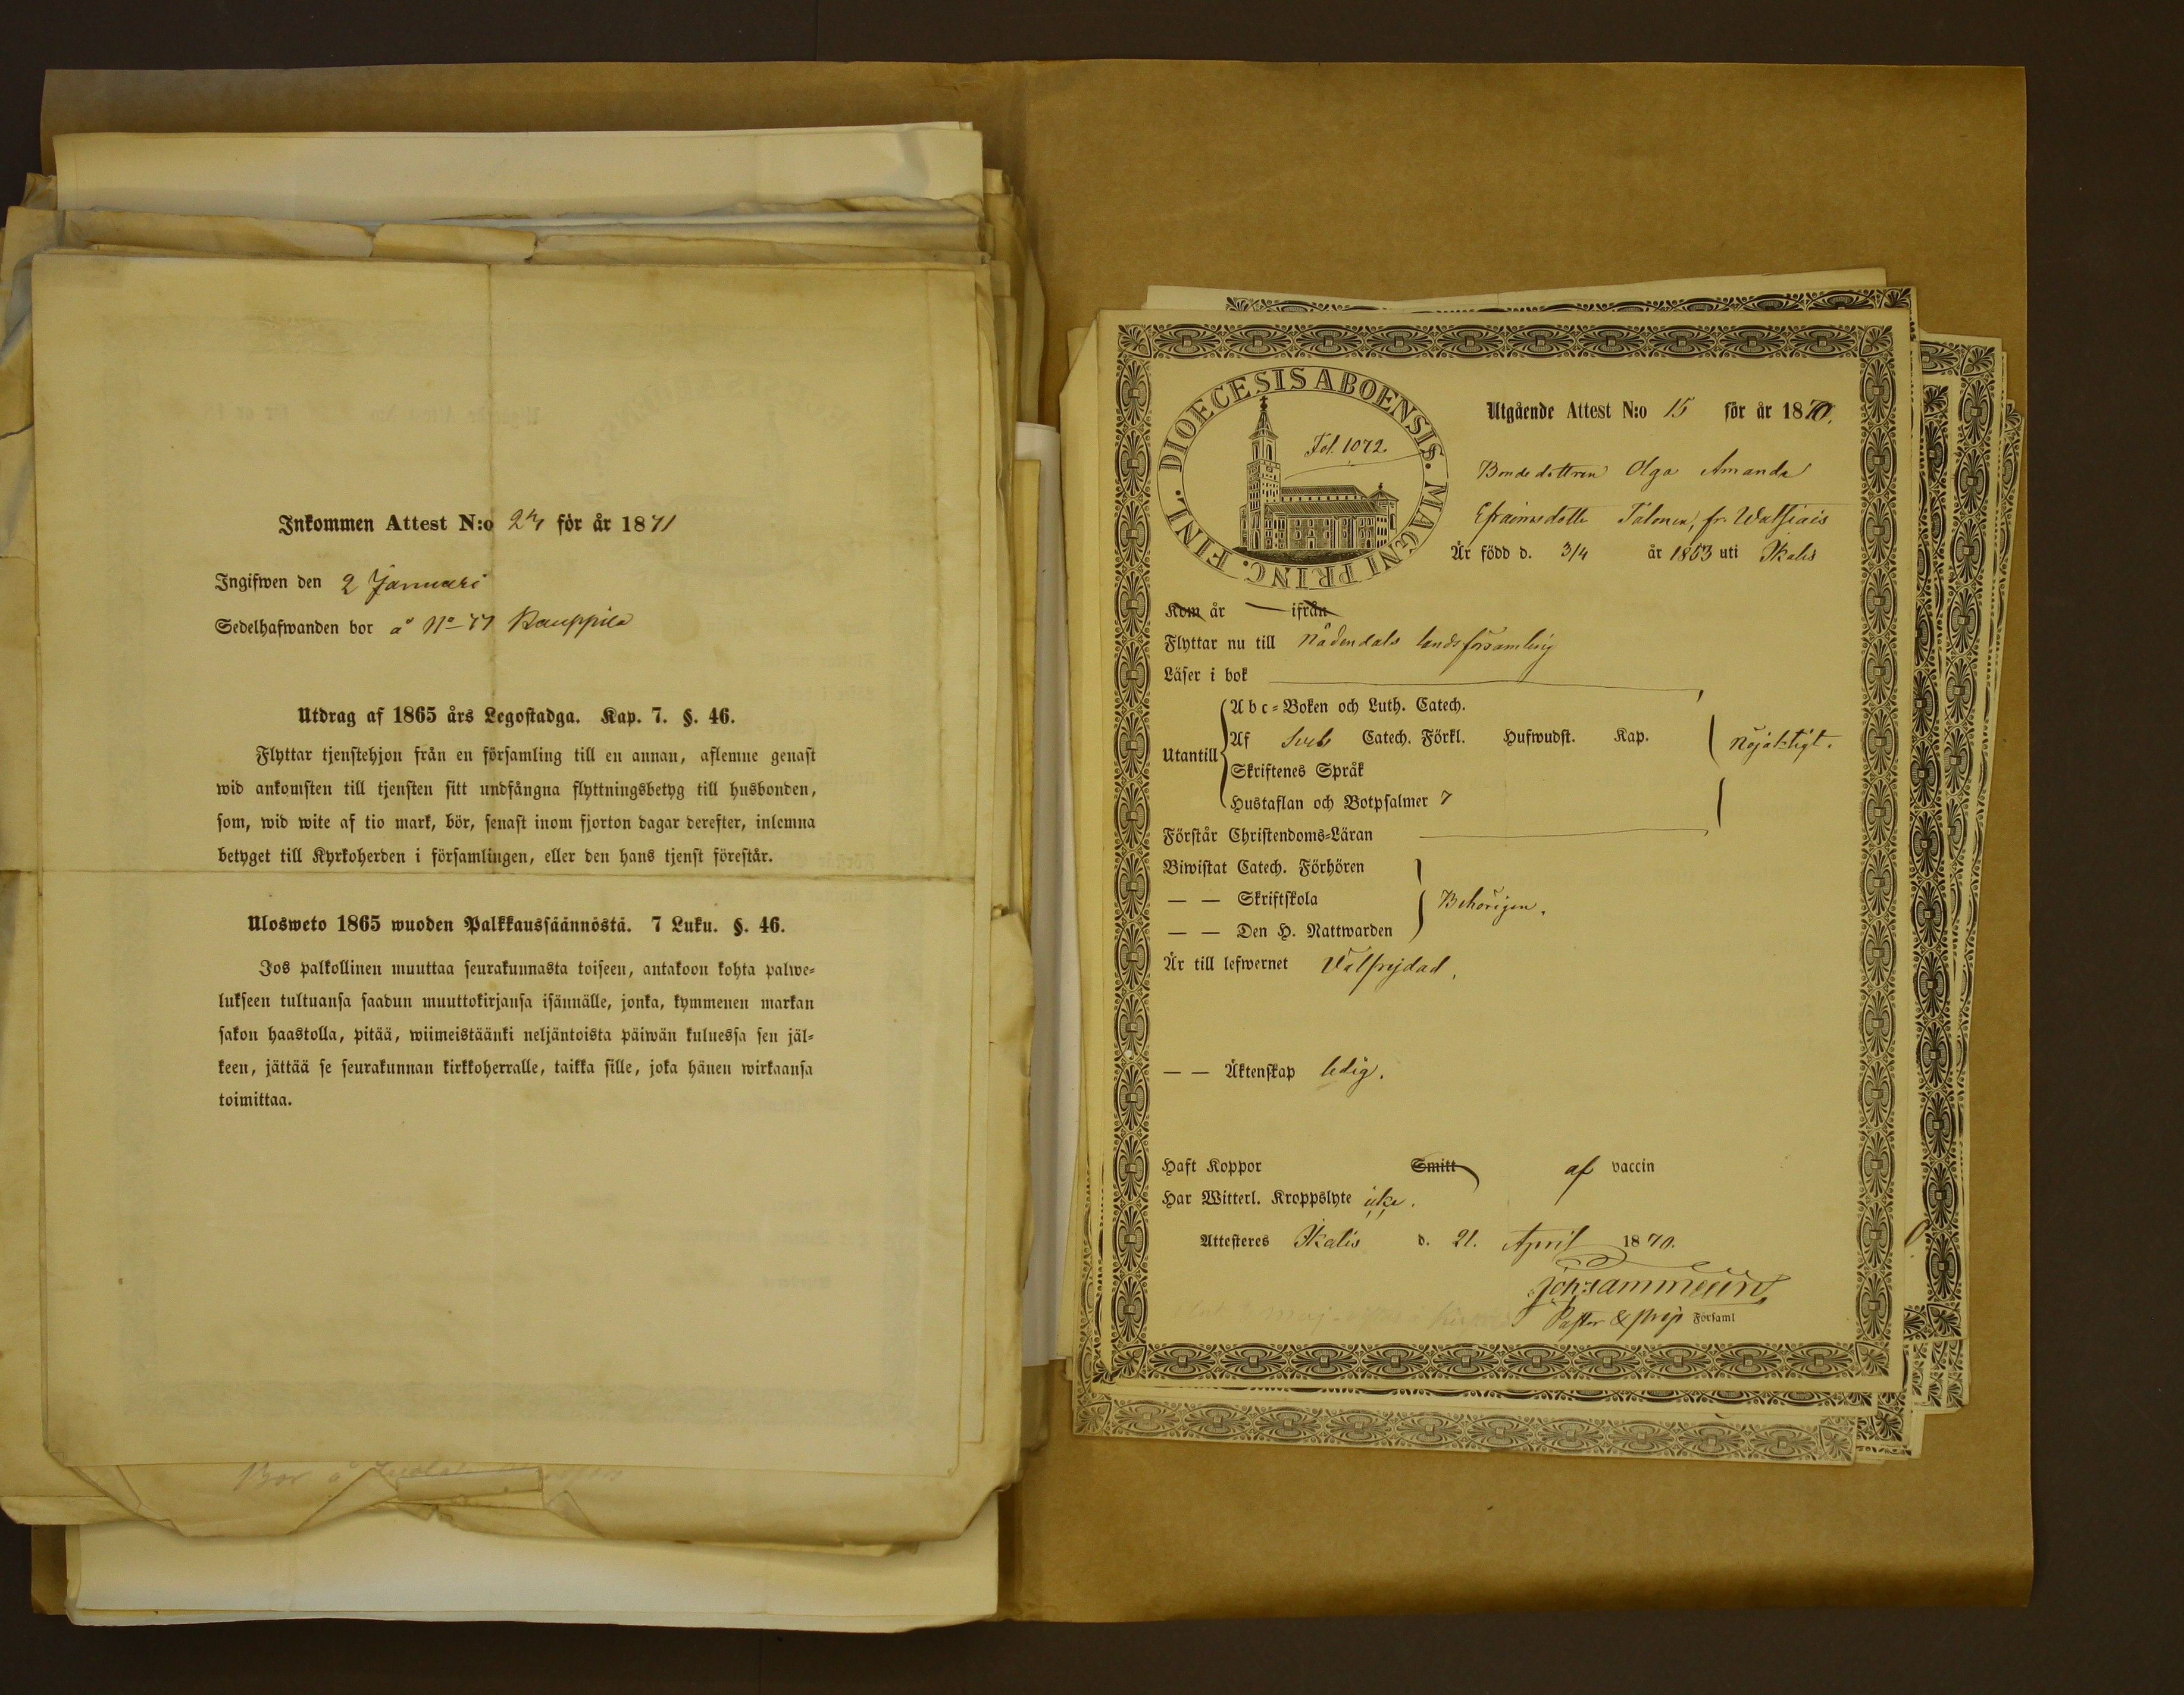 Inkommen Attest N:o 24 för år 1871
Ingifwen den 2 Januari
Sedelhafwanden bor å No 41 Kauppila
Utdrag af 1865 års Legostadga. Kap. 7. §. 46.
Flyttar tjenstehjon från en församling till en annan, aflemne genast
wid ankomsten till tjensten sitt undfångna flyttningsbetyg till husbonden,
som, wid wite af tio mark, bör, senast inom fjorton dagar derefter, inlemna
betyget till Kyrkoherden i församlingen, eller den hans tjenst förestår.
Ulosweto 1865 wuoden Palkkaussäännöstä. 7 Luku. §. 46.
Jos palkollinen muuttaa seurakunnasta toiseen, antakoon kohta palwe-
lukseen tultuansa saadun muuttokirjansa isännälle, jonka, kymmenen markan
sakon haastolla, pitää, wiimeistäänki neljäntoista päiwän kuluessa sen jäl-
keen, jättää se seurakunnan kirkkoherralle, taikka sille, joka hänen wirkaansa
toimittaa.
Bor å
DIOECESIS ABOENSIS. MAGNI PRINC. FINL.
Fol. 1072.
Utgående Attest N:o 15 för år 1870.
Bondedottren Olga Amanda
Efraimsdotter Talonen, fr. Watsiais
Är född d. 3/4 år 1853 uti Ikalis
Kom år — ifrån
Flyttar nu till Nådendals landsförsamling
Läser i bok
Abc-Boken och Luth. Catech.
Utantill Af Sveb Catech. Förkl. Hufwudst. Kap. nöjaktigt.
Skriftenes Språk
Hustaflan och Botpsalmer 7
Förstår Christendoms-Läran
Biwistat Catech. Förhören
— — Skriftskola Behörigen.
— — Den H. Nattwarden
Är till lefwernet Välfrejdad.
— — Äktenskap ledig.
Haft Koppor Smitt af vaccin
Har Witterl. Kroppslyte icke.
Attesteres Ikalis d. 21. April 1870.
Pastor & præp Församl